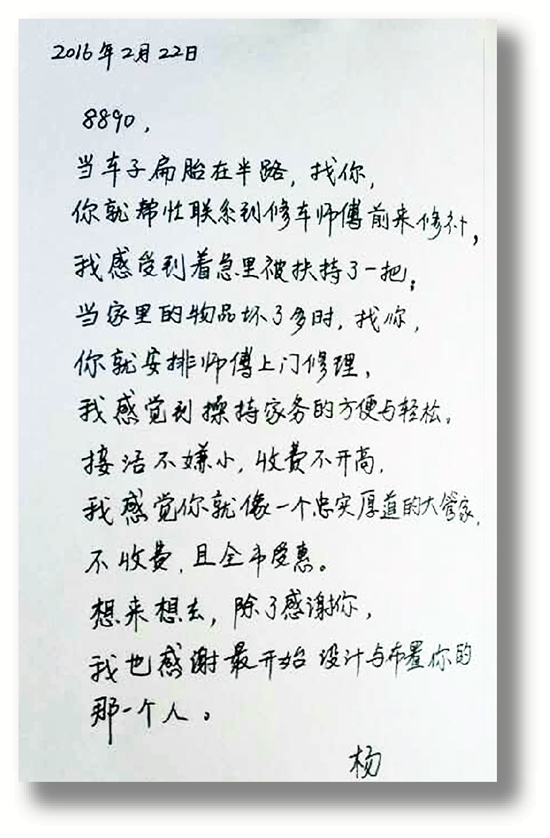 2016年2月22日
8890，
当车子扁胎在半路，找你，
你就帮忙联系到修车师傅前来修补，
我感受到着急里被扶持了一把；
当家里的物品坏了多时，找你，
你就安排师傅上门修理，
我感觉到操持家务的方便与轻松。
接活不嫌小，收费不开高，
我感觉你就像一个忠实厚道的大管家，
不收费，且全市受惠。
想来想去，除了感谢你，
我也感谢最开始设计与布置你的
那一个人。
杨